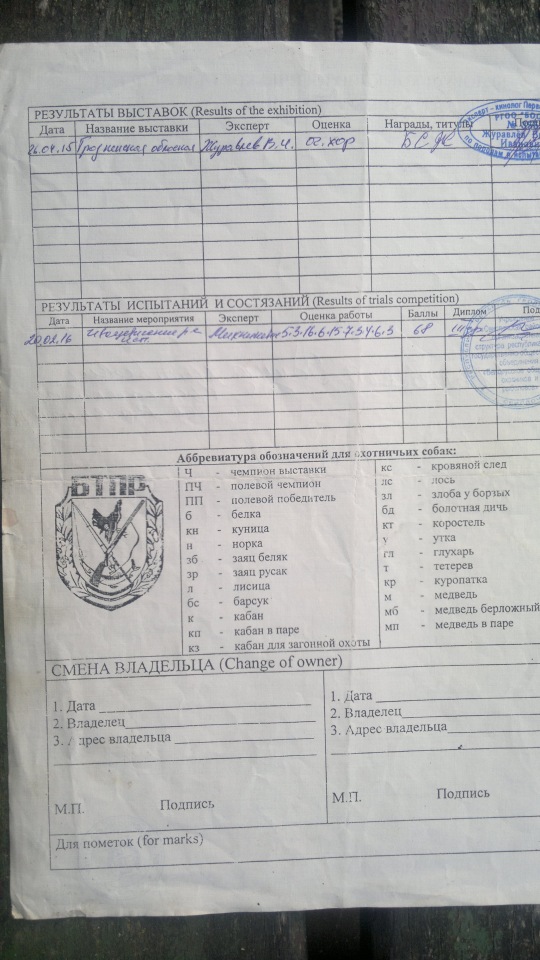 РЕЗУЛЬТАТЫ ВЫСТАВОК (Results of the exhibition)
Дата Название выставки Эксперт Оценка Награды, титулы
26.04.15 Гродненская областная Журавлев В.И. оч. хор
РЕЗУЛЬТАТЫ ИСПЫТАНИЙ И СОСТЯЗАНИЙ (Results of trials competition)
Дата Название мероприятия Эксперт Оценка работы Баллы Диплом Под
20.02.16 68
Аббревиатура обозначений для охотничьих собак:
Ч - чемпион выставки
ПЧ - полевой чемпион
ПП - полевой победитель
б - белка
кн - куница
н - норка
зб - заяц беляк
зр - заяц русак
л - лисица
бс - барсук
к - кабан
кп - кабан в паре
кз - кабан для загонной охоты
кс - кровяной след
лс - лось
зл - злоба у борзых
бд - болотная дичь
кт - коростель
у - утка
гл - глухарь
т - тетерев
кр - куропатка
м - медведь
мб - медведь берложный
мп - медведь в паре
БТПР
СМЕНА ВЛАДЕЛЬЦА (Change of owner)
1. Дата
2. Владелец
3. Адрес владельца
М.П. Подпись
1. Дата
2. Владелец
3. Адрес владельца
М.П. Подпись
Для пометок (for marks)